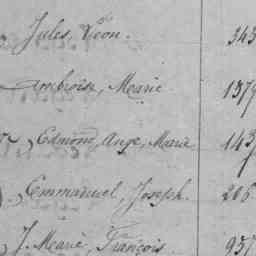 Jules, Léon. 343
Ambroise, Marie 1379
Edmond, Ange, Marie 143
Emmanuel, Joseph. 206
J. Marie, François 957